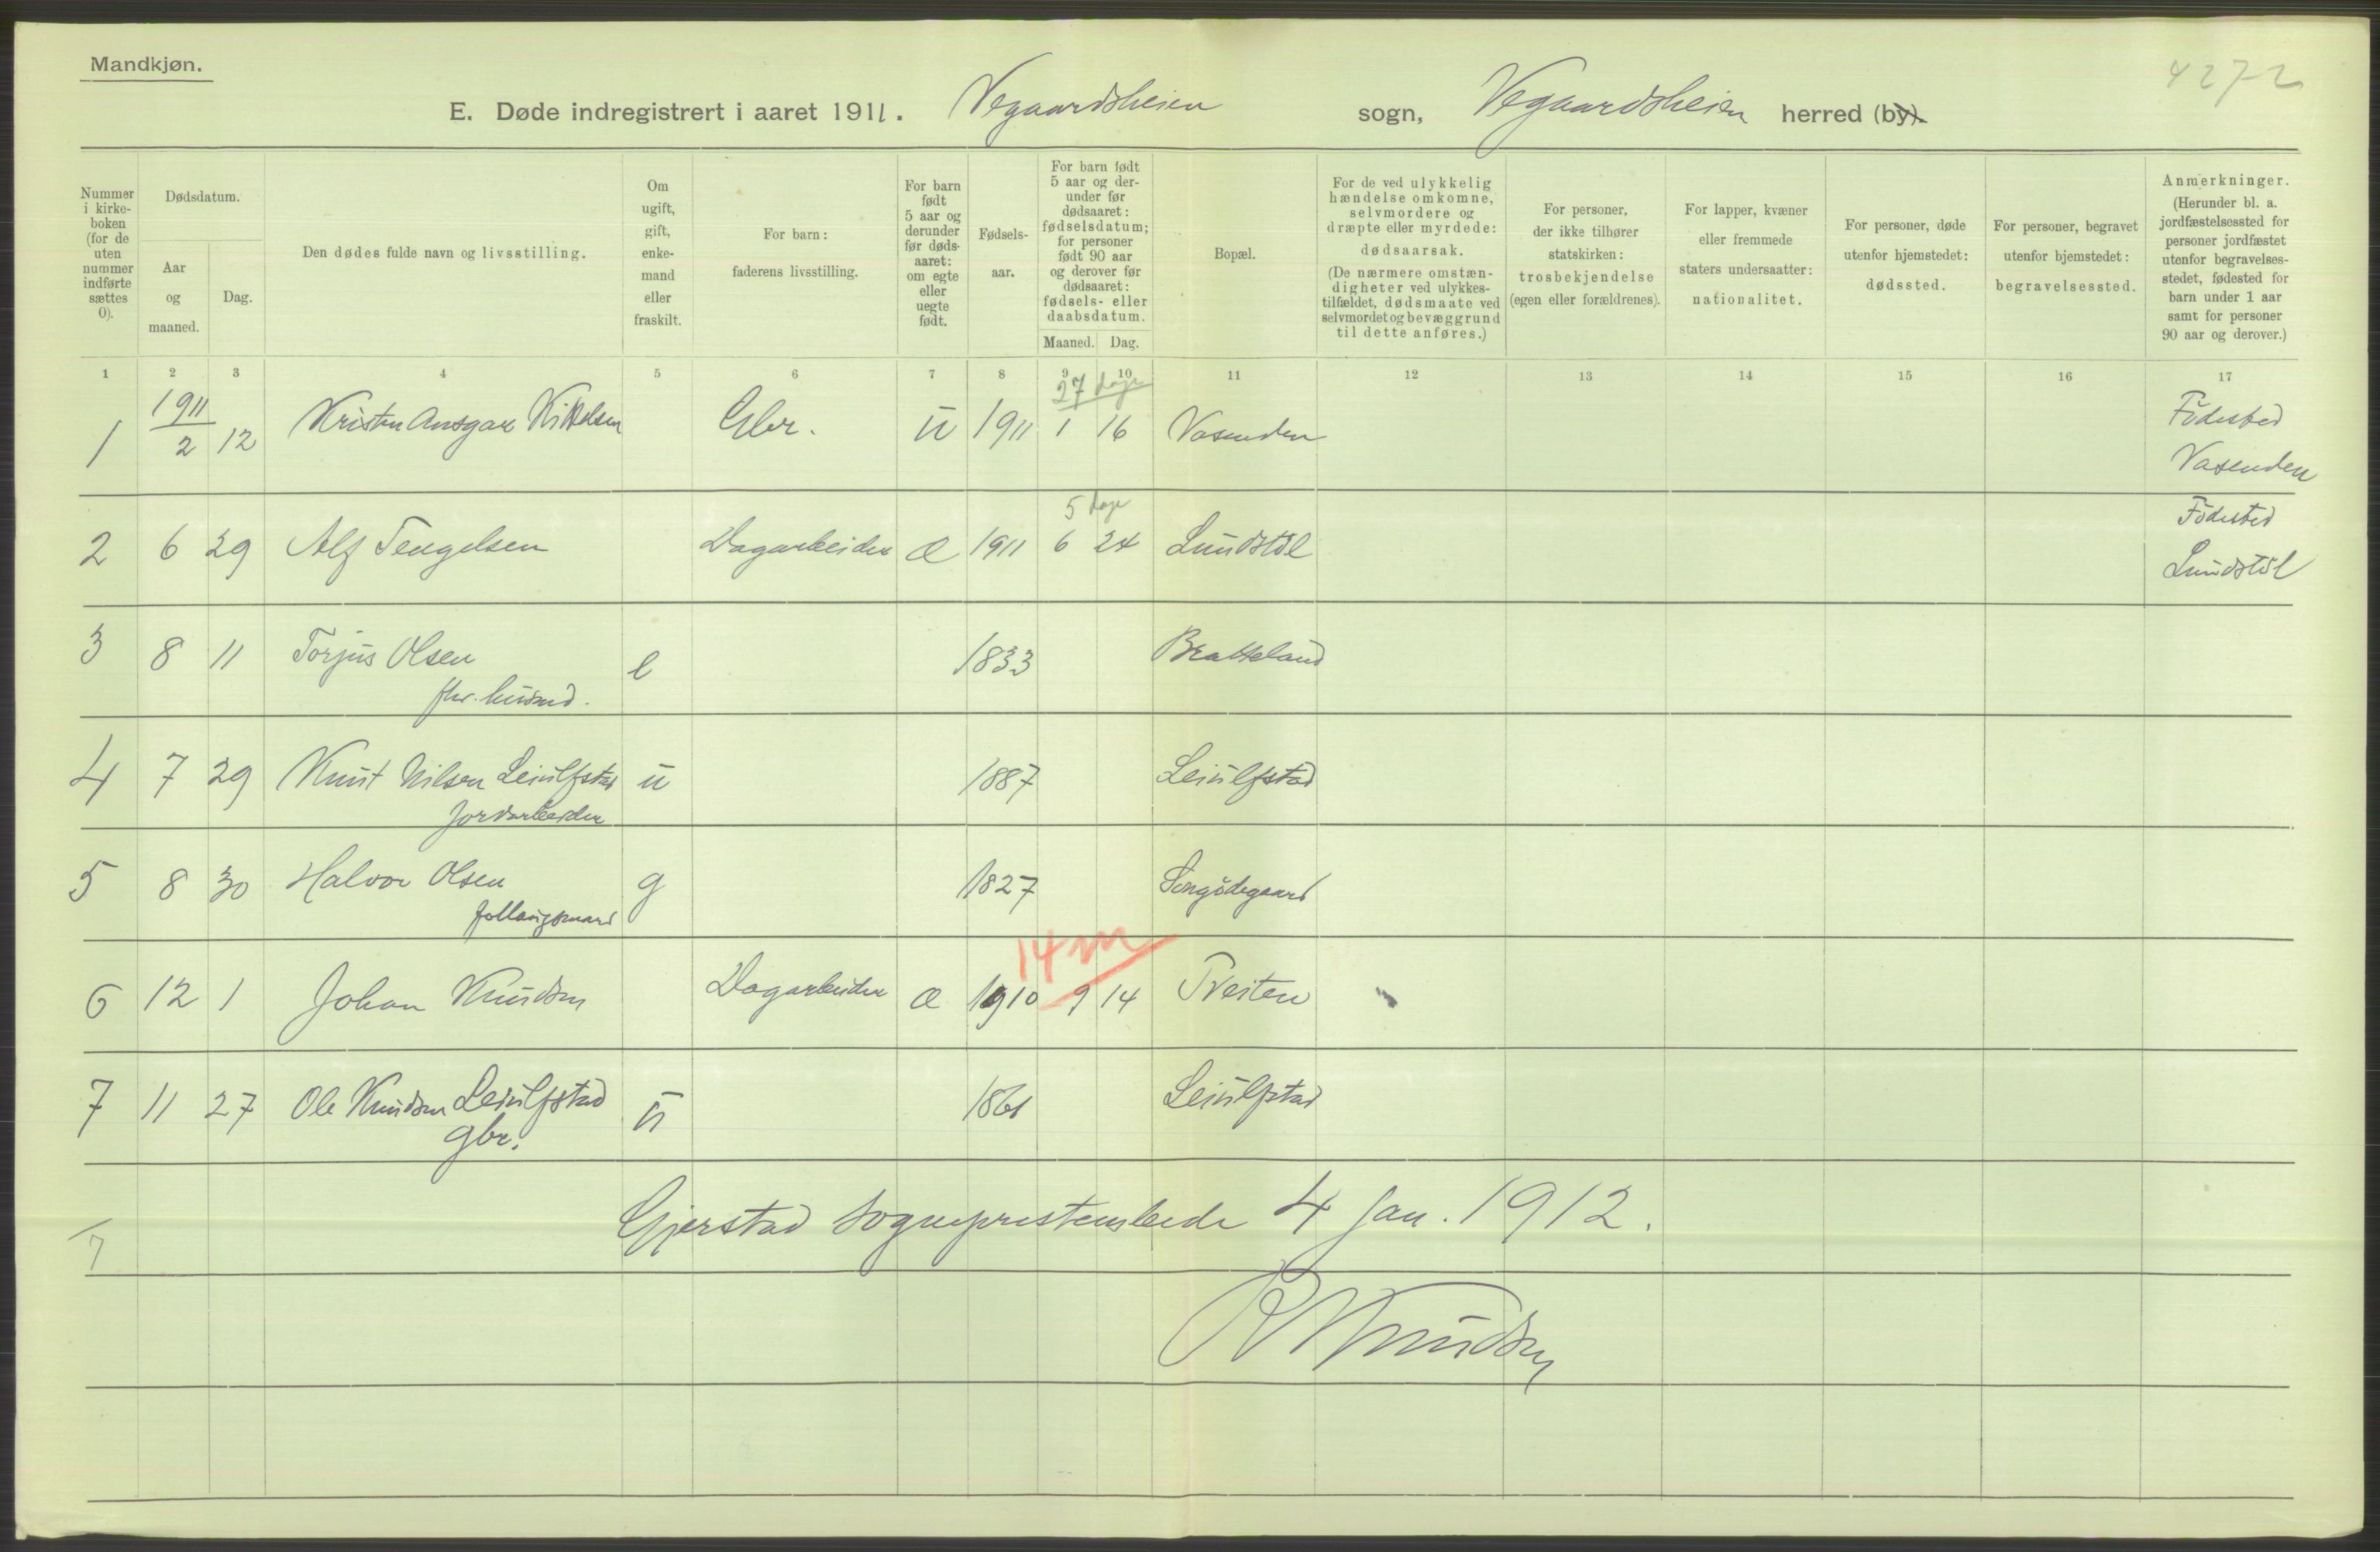 Mandkjøn.
4272
E. Døde indregistrert i aaret 1911. Vegaardsheien sogn, Vegaardsheien herred (by).
Nummer i kirke-boken (for de uten nummer indførte sættes 0).
Dødsdatum.
Aar og maaned.
Dag.
Den dødes fulde navn og livsstilling.
Om ugift, gift, enke-mand eller fraskilt.
For barn: faderens livsstilling.
For barn født 5 aar og derunder før døds-aaret: om egte eller uegte født.
Fødsels-aar.
For barn født 5 aar og der-under før dødsaaret: fødselsdatum; for personer født 90 aar og derover før dødsaaret: fødsels- eller daabsdatum.
Maaned. Dag.
Bopæl.
For de ved ulykkelig hændelse omkomne, selvmordere og dræpte eller myrdede: dødsaarsak.
(De nærmere omstæn-digheter ved ulykkes-tilfældet, dødsmaate ved selvmordet og bevæggrund til dette anføres.)
For personer, der ikke tilhører statskirken: trosbekjendelse (egen eller forældrenes).
For lapper, kvæner eller fremmede staters undersaatter: nationalitet.
For personer, døde utenfor hjemstedet: dødssted.
For personer, begravet utenfor hjemstedet: begravelsessted.
Anmerkninger. (Herunder bl. a. jordfæstelsessted for personer jordfæstet utenfor begravelses-stedet, fødested for barn under 1 aar samt for personer 90 aar og derover.)
1 2 3 4 5 6 7 8 9 10 11 12 13 14 15 16 17
27 dage
1 1911/2 12 Kristen Ansgar Kittelsen Gbr. u 1911 1 16 Vasenden Födested
Vasenden
5 dage
2 6 29 Alf Tengelsen Dagarbeider e 1911 6 24 Lundstöl Födested
Lundstöl
3 8 11 Torjus Olsen e 1833 Bratteland
fhv. husmd.
4 7 29 Knut Nilsen Leiulfstad u 1887 Leiulfstad
Jordarbeider
5 8 30 Halvor Olsen g 1827 Songödegaard
follaugsmand
14 m
6 12 1 Johan Knudsen Dagarbeider e 1910 9 14 Tveiten
7 11 27 Ole Knudsen Leiulfstad u 1861 Leiulfstad
gbr.
7 Gjerstad sogneprestembede 4 Jan. 1912.
Knudsen